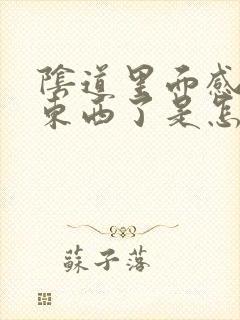 陰道里面感
東西了是怎
蘇子落